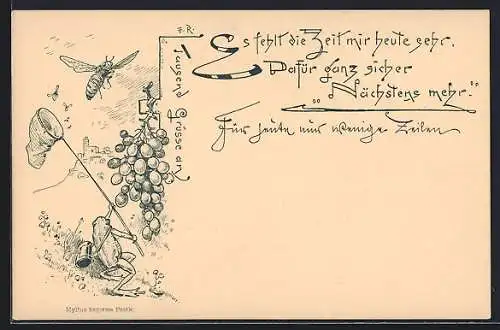 F.R.
Es fehlt die Zeit mir heute sehr,
Dafür ganz sicher
„Nächstens mehr.“
Für heute nur wenige Zeilen
Tausend Grüsse an